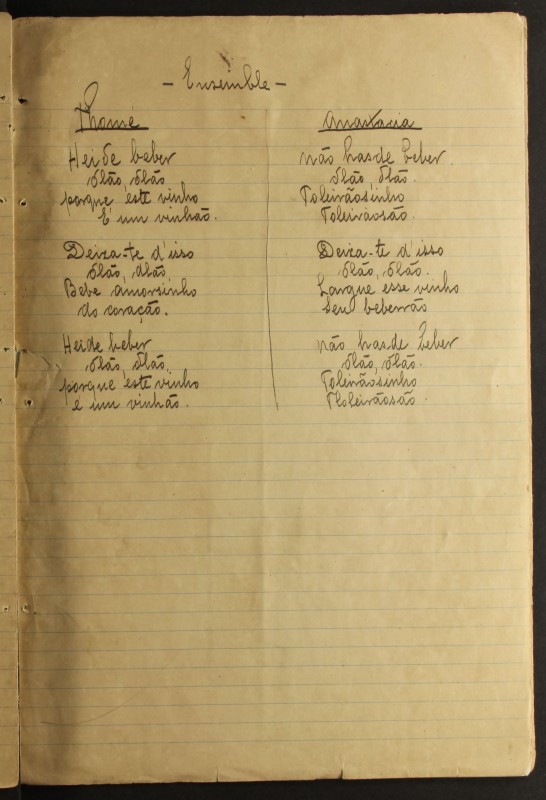 - Ensemble -
Thomé
Hei de beber
Ólão, ólão
porque este vinho
É um vinhão.
Deixa-te d'isso
Ólão, ólão
Bebe amorsinho
do coração.
Hei de beber
ólão, ólão,
porque este vinho
é um vinhão.
Anastacia
não hasde beber.
ólão, ólão.
Toleirãosinho
Toleirãosão.
Deixa-te d'isso
ólão, ólão.
Largue esse vinho
Seu beberrão
não hasde beber
ólão, ólão.
Toleirãosinho
Tloleirãosão.